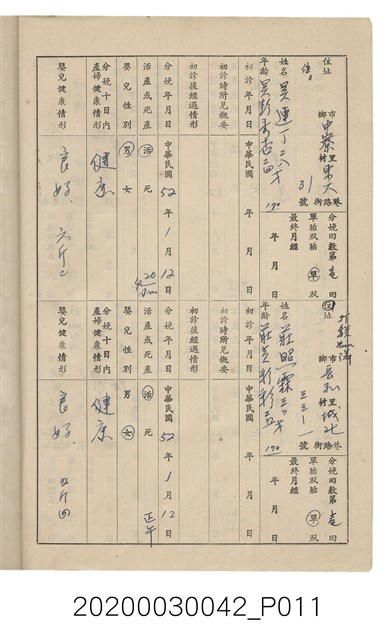 住址 市鄉 中寮 里村 東大 31 號 巷路街
姓名 吳連丁 二八才
年齡 吳彭秀杏 二四 170
分娩回數第 壱 回
單胎双胎 單 双
最終月經 年 月 日
初診年月日
初診時所見概要
初診後經過情形
分娩年月日 中華民國 52 年 1 月 12 日
活產或死產 活 死
嬰兒性別 男 女
分娩十日內產婦健康情形 健康
嬰兒健康情形 良好 六斤二
住址 市鄉 里村 城北 三三一 號 巷路街
姓名 莊照霖
年齡 170
分娩回數第 壱 回
單胎双胎 單 双
最終月經 年 月 日
初診年月日
初診時所見概要
初診後經過情形
分娩年月日 中華民國 52 年 1 月 12 日
活產或死產 活 死 正午
嬰兒性別 男 女
分娩十日內產婦健康情形 健康
嬰兒健康情形 良好
20200030042_P011